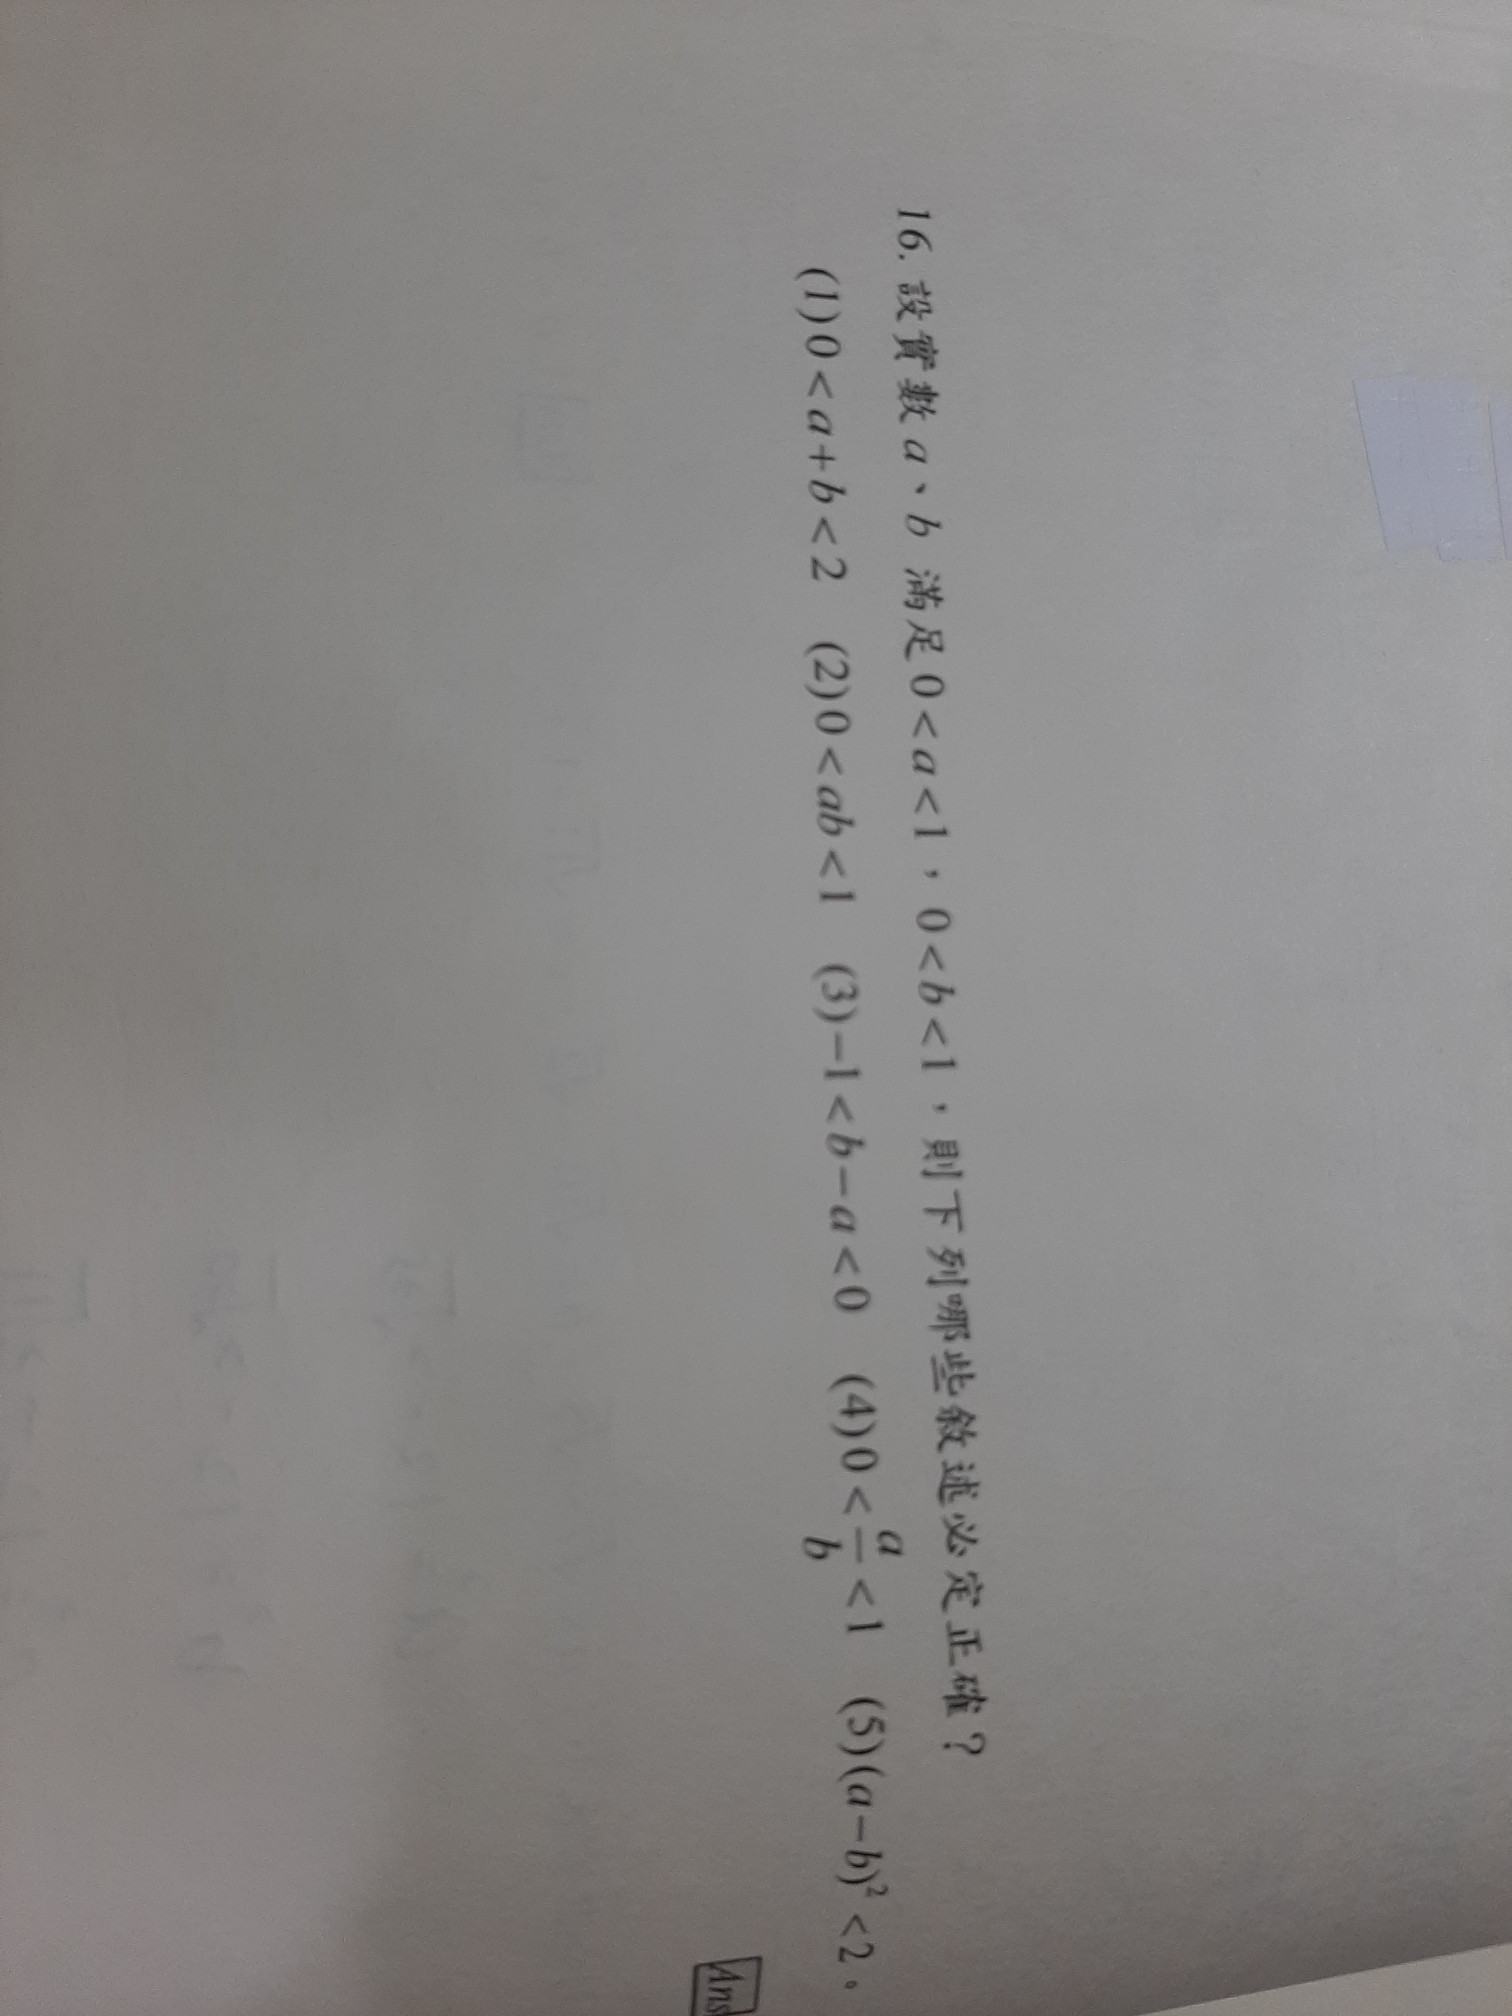 16. 設實數 a、b 滿足 0<a<1，0<b<1，則下列哪些敘述必定正確？
(1)0<a+b<2 (2)0<ab<1 (3)−1<b−a<0 (4)0<a/b<1 (5)(a−b)²<2。
Ans